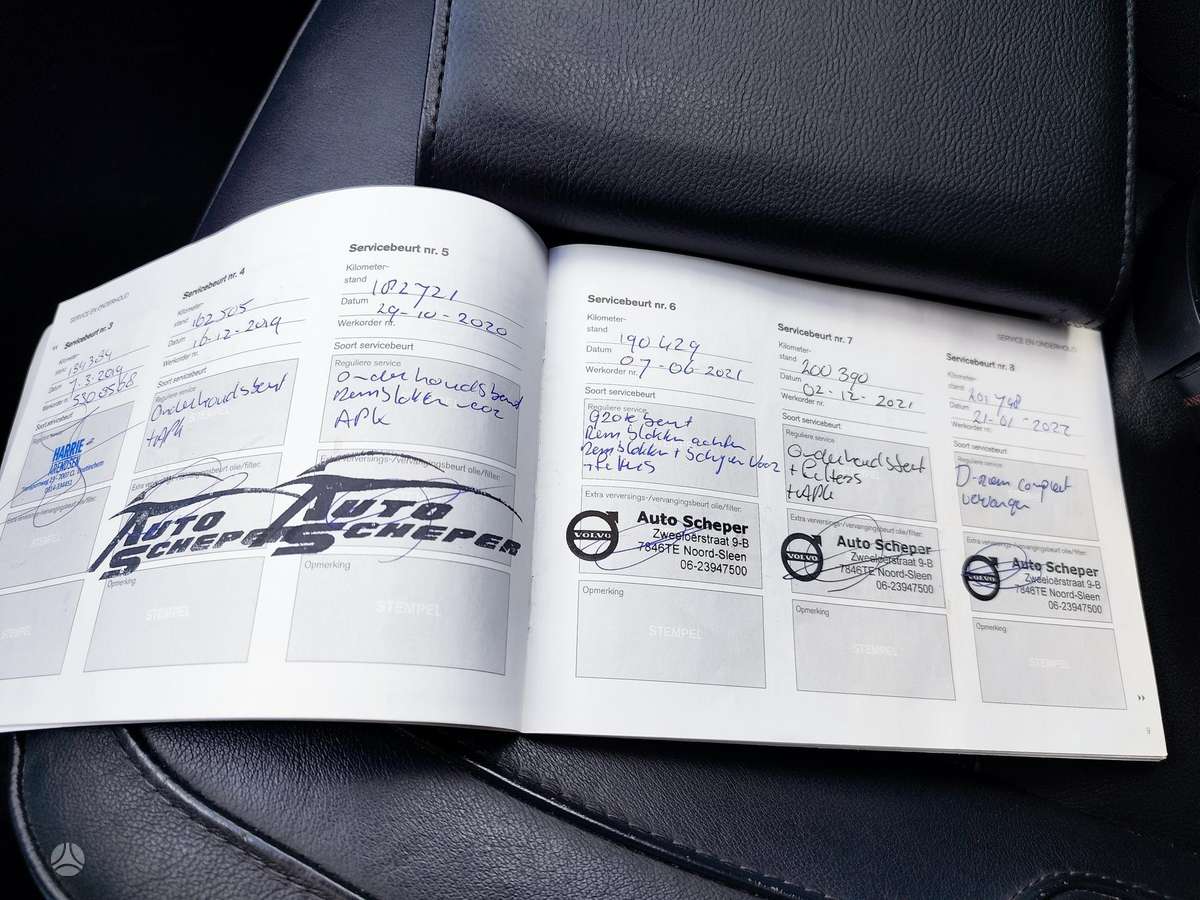 SERVICE EN ONDERHOUD
Servicebeurt nr. 3
Kilometer-
stand
Datum 7-3-2019
Werkorder nr.
Servicebeurt
HARRIE
ARENDSEN
STEMPEL
STEMPEL
Servicebeurt nr. 4
Kilometer-
stand 162505
Datum 16-12-2019
Werkorder nr.
Soort servicebeurt
Onderhoudsbeurt
+APK
AUTO
SCHEPER
Opmerking
STEMPEL
Servicebeurt nr. 5
Kilometer-
stand 182721
Datum 29-10-2020
Werkorder nr.
Soort servicebeurt
Reguliere service
Onderhoudsbeurt
Remblokken voor
APK
Extra verversings-/vervangingsbeurt olie/filter:
AUTO
SCHEPER
Opmerking
STEMPEL
Servicebeurt nr. 6
Kilometer-
stand 190429
Datum 07-06-2021
Werkorder nr.
Soort servicebeurt
Reguliere service
Grote beurt
Remblokken achter
Remblokken + Schijven Voor
+Filters
Extra verversings-/vervangingsbeurt olie/filter:
VOLVO
Auto Scheper
Zweeloërstraat 9-B
7846TE Noord-Sleen
06-23947500
Opmerking
STEMPEL
SERVICE EN ONDERHOUD
Servicebeurt nr. 7
Kilometer-
stand 200390
Datum 02-12-2021
Werkorder nr.
Soort servicebeurt
Reguliere service
Onderhoudsbeurt
+ Filters
+APK
Extra verversings-/vervangingsbeurt olie/filter:
VOLVO
Auto Scheper
Zweeloërstraat 9-B
7846TE Noord-Sleen
06-23947500
Opmerking
STEMPEL
Servicebeurt nr. 8
Kilometer-
stand
Datum 21-01-2022
Werkorder nr.
Soort servicebeurt
Reguliere service
D-riem compleet
vervangen
Extra verversings-/vervangingsbeurt olie/filter:
VOLVO
Auto Scheper
Zweeloërstraat 9-B
7846TE Noord-Sleen
06-23947500
Opmerking
STEMPEL
9